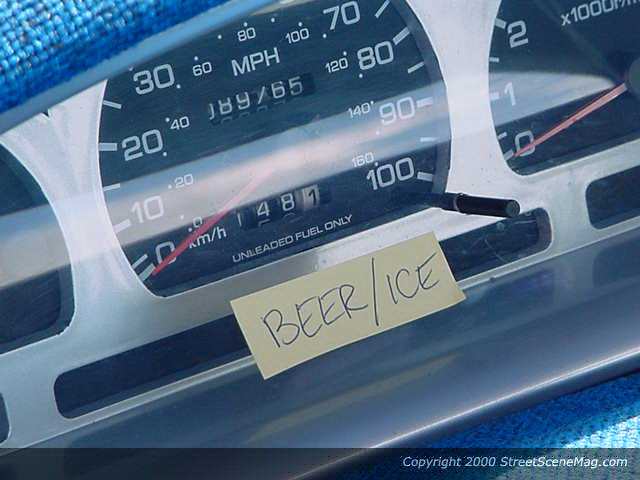 70
80
100
60
MPH
30
120 80
x1000r/m
2
189765
1
40
20
140
90
0
160
100
20
10
1 4 8 1
0
km/h
0
UNLEADED FUEL ONLY
BEER/ICE
Copyright 2000 StreetSceneMag.com